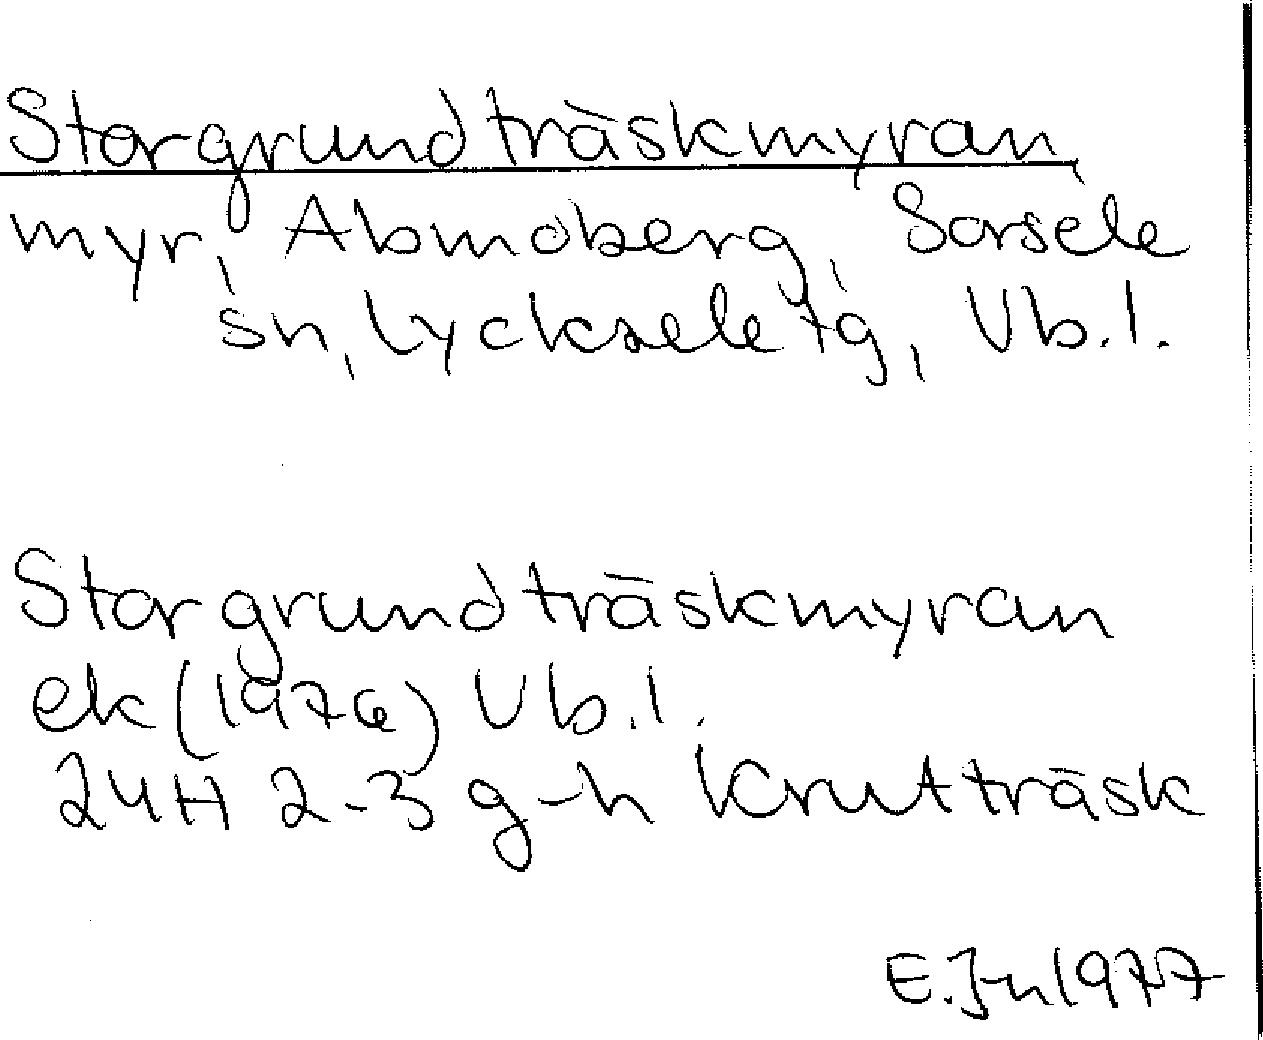 Storgrundträskmyran,
myr, Abmoberg, Sorsele
sn, Lycksele tg, Vb.l.
Storgrundträskmyran
ek (1976) Vb.l.
24H 2-3 g-h Krutträsk
E.Jn 1977